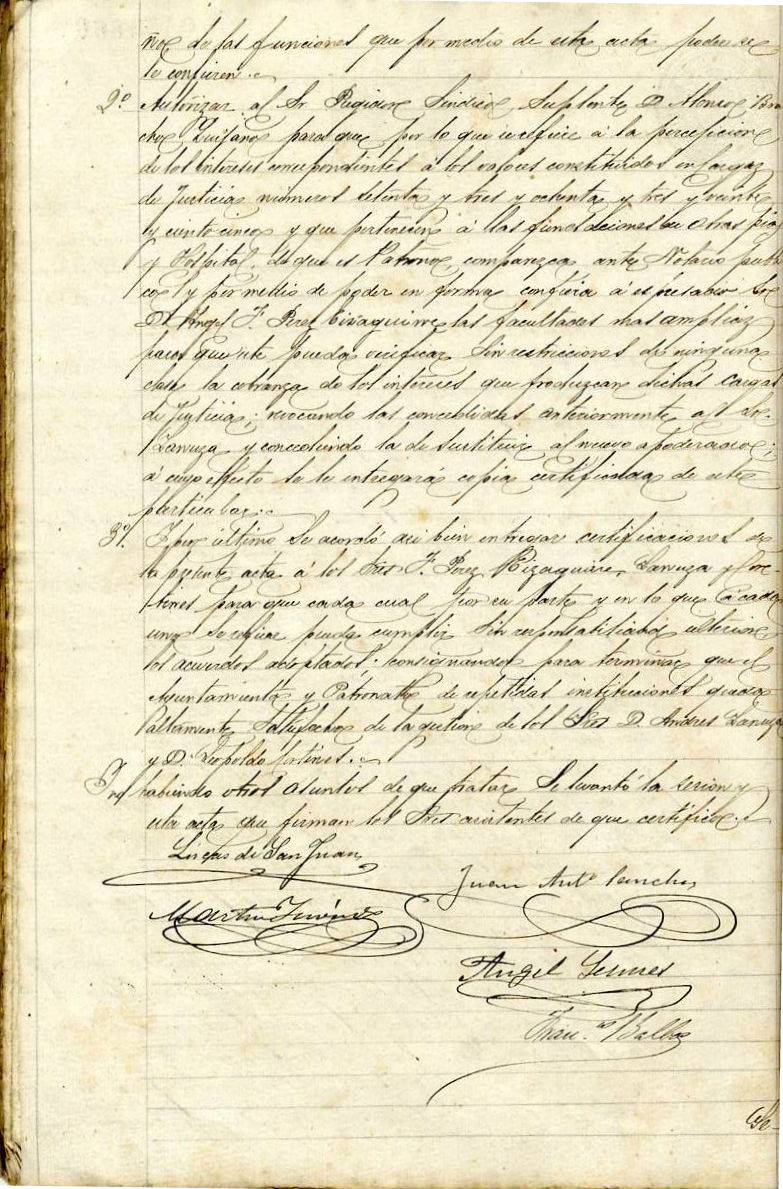 ños de las funciones que por medio de esta acta poder se
le confieren.
2º Autorizar al Sr. Regidor Síndico Suplente D. Alonso
para que por lo que se refiere á la percepcion
de los intereses correspondientes á los valores constituidos en Cargas
de Justicia números setenta y tres y ochenta y tres y veinte
y ciento cinco y que pertenecen á las fundaciones de Obras pias
y Hospital, de que es Patrono, comparezca ante Notario publi
co y por medio de poder en forma confiera á espresado Sor
D. Angel F. Perez las facultades mas amplias
para que este pueda verificar sin restricciones de ninguna
clase la cobranza de los intereses que produzcan dichas cargas
de Justicia; revocando las concedidas anteriormente al Sor.
Lanuza y concediendo la de sustituir al nuevo apoderado;
á cuyo efecto se le entregará copia certificada de este
particular.
3º. Y por último se acordó asi bien entregar certificaciones de
la presente acta á los Sres F. Perez Lanuza y For-
tines para que cada cual por su parte y en lo que á cada
uno se refiere pueda cumplir sin responsabilidad ulterior
los acuerdos adoptados; consignando para terminar que el
Ayuntamiento y Patronato de repetidas instituciones queda
altamente satisfecho de la gestion de los Sres D. Andres Lanuza
y D. Leopoldo Fortines.
Y no habiendo otros asuntos de que tratar se levantó la sesion y
esta acta que firman los Sres asistentes de que certifico.
Lucas de San Juan
Juan Antº Sancho
Martin
Angel
Franco